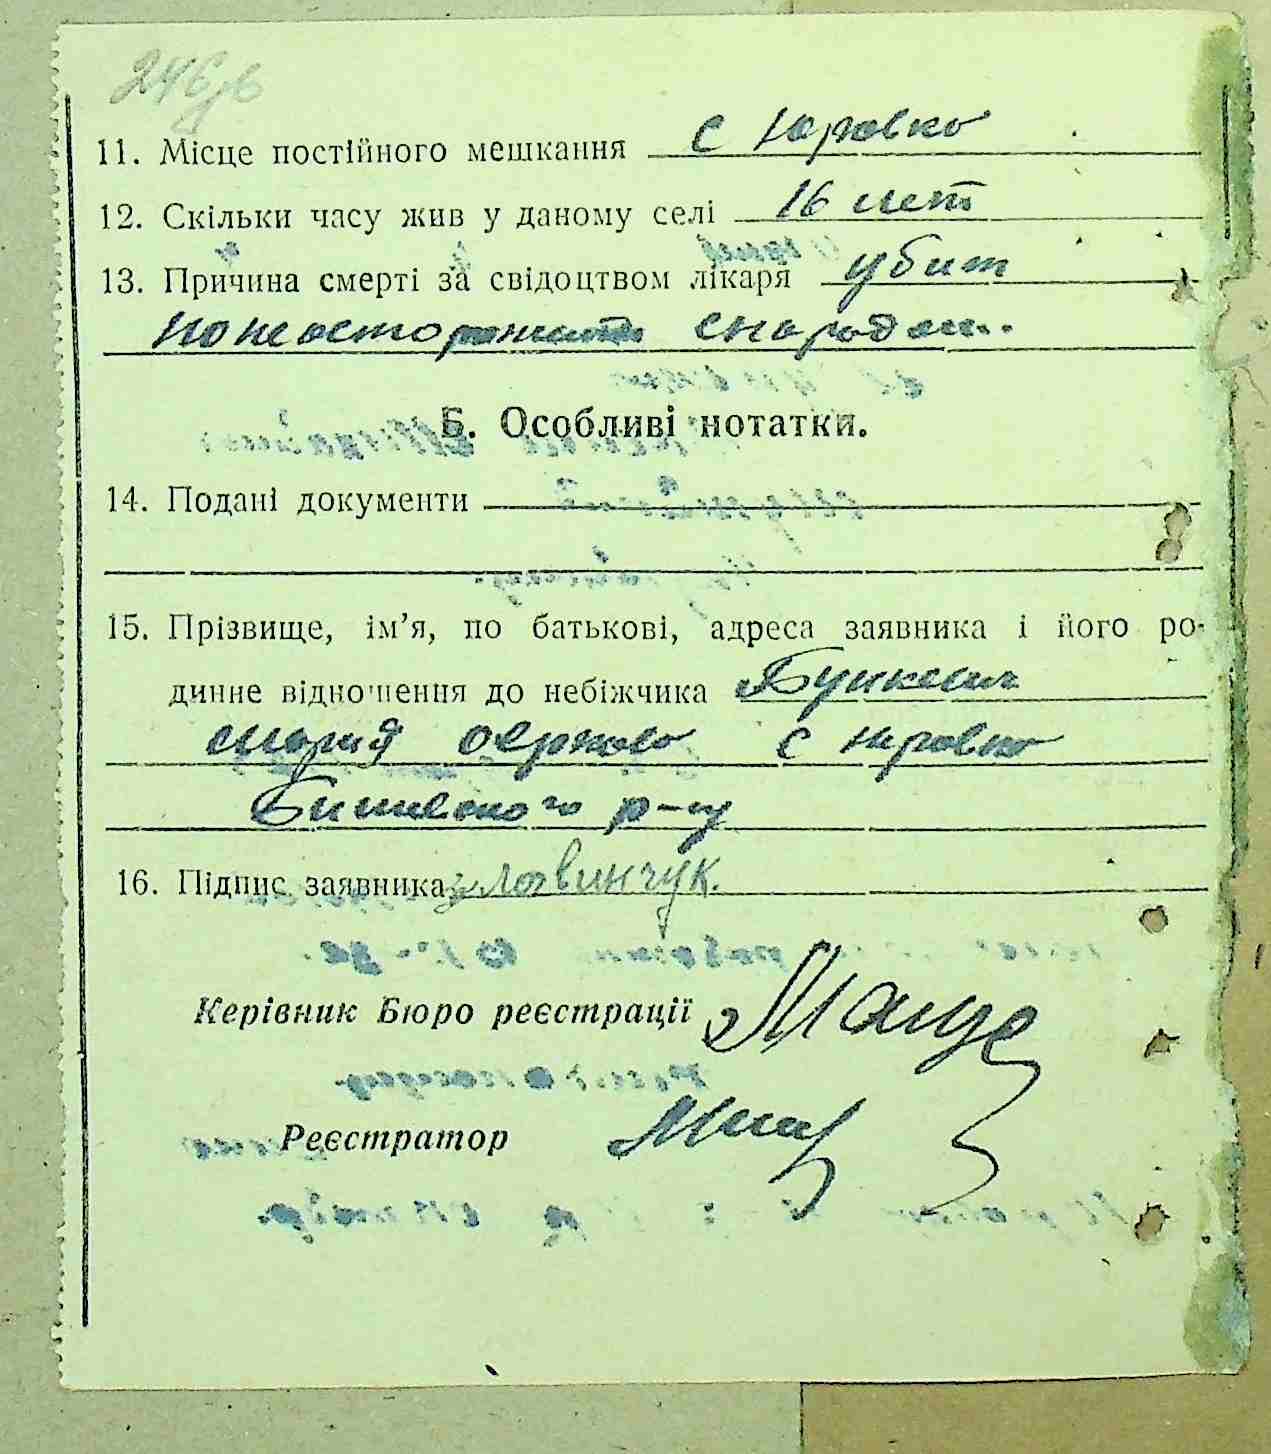 246зв
11. Місце постійного мешкання с Юровко
12. Скільки часу жив у даному селі 16 лет
13. Причина смерті за свідоцтвом лікаря убит
снарядом.
Б. Особливі нотатки.
14. Подані документи
15. Прізвище, ім'я, по батькові, адреса заявника і його ро-
динне відношення до небіжчика
с Юровко
р-ну
16. Підпис заявника Ловинчук.
Керівник Бюро реєстрації
Реєстратор